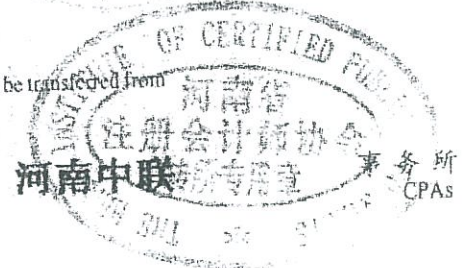 be transferred from
INSTITUTE OF CERTIFIED
河南省
注册会计师协会
河南中联
事务所
CPAs
THE